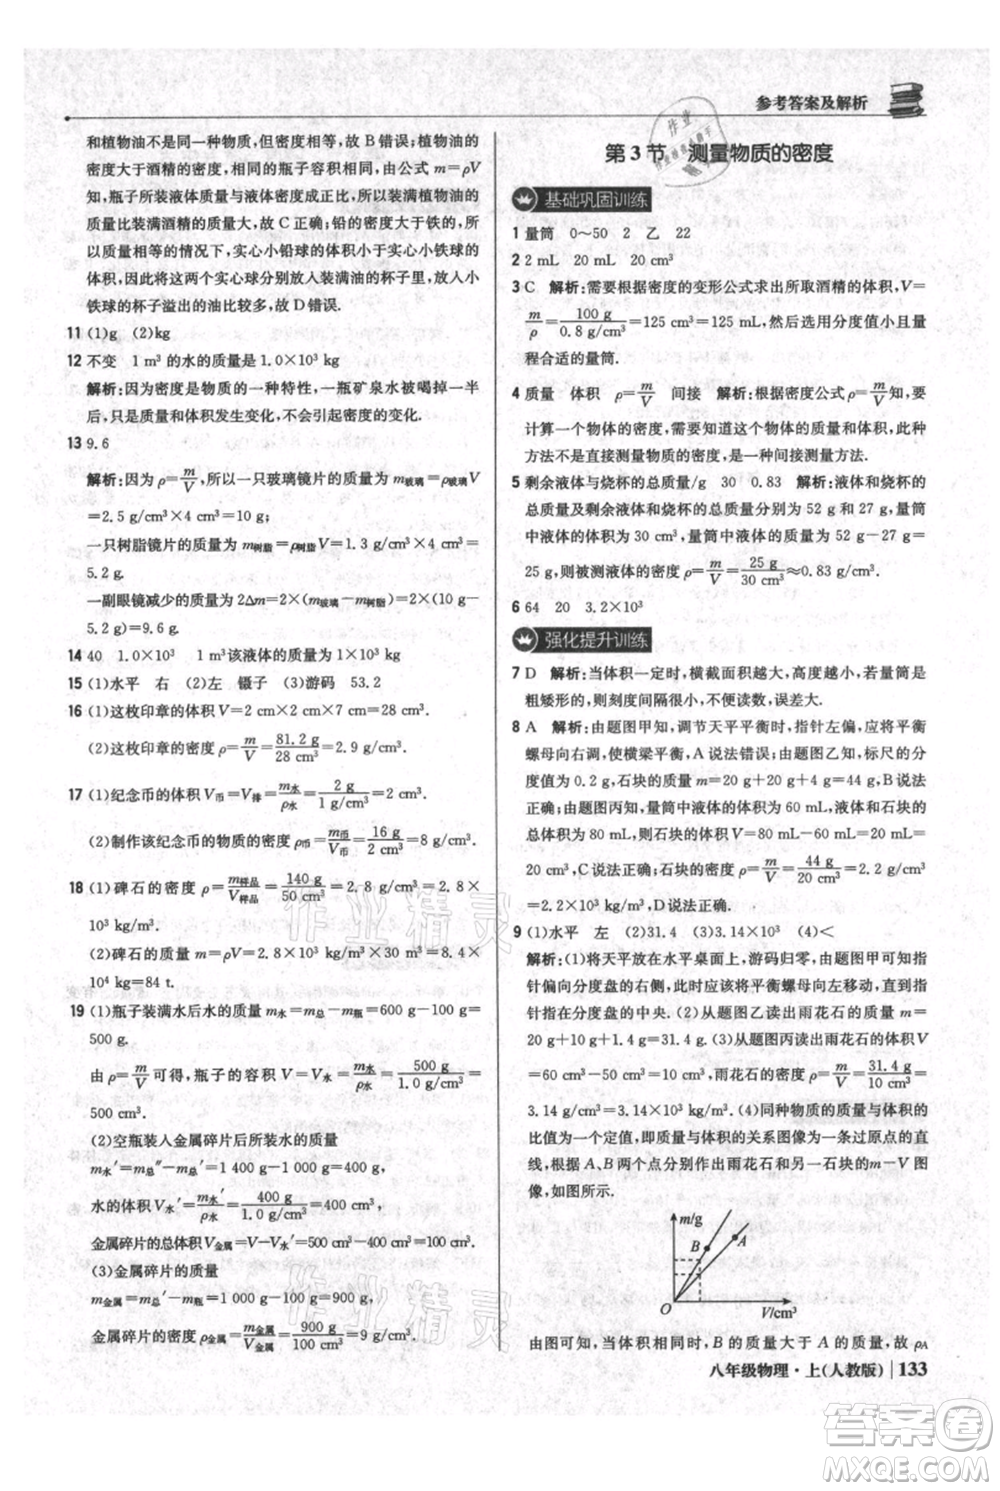 参考答案及解析
和植物油不是同一种物质,密度不同,故 B 错误;植物油的
密度大于酒精的密度,相同的瓶子容积相同,由公式 m=ρV
知,瓶子所装液体质量与液体密度成正比,所以装满植物油的
质量比装满酒精的质量大,故 C 正确;铅的密度大于铁的,所
以质量相等的情况下,实心小铅球的体积小于实心小铁球的
体积,将质量相等的实心球分别放入装满油的杯子里,放入小
铁球的杯子溢出的油比较多,故 D 错误.
11 (1)g (2)kg
12 不变 1 m³的水的质量是 1.0×10³ kg
解析:因为密度是物质的一种特性,一瓶矿泉水被喝掉一半
后,只是质量和体积发生变化,不会引起密度的变化.
13 9.6
解析:因为 ρ=m/V,所以一只玻璃镜片的质量 m玻璃=ρ玻璃V
=2.5 g/cm³×4 cm³=10 g;
一只树脂镜片的质量为 m树脂=ρ树脂V=1.3 g/cm³×4 cm³=
5.2 g.
一副眼镜减少的质量为 2Δm=2×(m玻璃-m树脂)=2×(10 g-
5.2 g)=9.6 g.
14 40 1.0×10³ 1 m³该液体的质量为 1.0×10³ kg
15 (1)水平 右 (2)左 镊子 (3)游码 53.2
16 (1)这枚印章的体积 V=2 cm×2 cm×7 cm=28 cm³.
(2)这枚印章的密度 ρ=m/V=81.2 g/28 cm³=2.9 g/cm³.
17 (1)纪念币的体积 V币=V排=m水/ρ水=2 g/1 g/cm³=2 cm³.
(2)制作该纪念币的密度 ρ币=m币/V币=16 g/2 cm³=8 g/cm³.
18 (1)碑石的密度 ρ=m样品/V样品=140 g/50 cm³=2.8 g/cm³=2.8×
10³ kg/m³.
(2)碑石的质量 m=ρV=2.8×10³ kg/m³×30 m³=8.4×
10⁴ kg=84 t.
19 (1)瓶子装满水后水的质量 m水=m总-m瓶=600 g-100 g
=500 g.
由 ρ=m/V 可得,瓶子的容积 V=V水=m水/ρ水=500 g/1.0 g/cm³=
500 cm³.
(2)空瓶装入金属碎片后所装水的质量
m水′=m总″-m总′=1 400 g-1 000 g=400 g,
水的体积 V水′=m水′/ρ水=400 g/1.0 g/cm³=400 cm³,
金属碎片的总体积 V金属=V-V水′=500 cm³-400 cm³=100 cm³.
(3)金属碎片的质量
m金属=m总′-m瓶=1 000 g-100 g=900 g,
金属碎片的密度 ρ金属=m金属/V金属=900 g/100 cm³=9 g/cm³.
第 3 节 测量物质的密度
基础巩固训练
1 量筒 0~50 2 乙 22
2 2 mL 20 mL 20 cm³
3 C 解析:需要根据密度的变形公式求出所取酒精的体积,V=
m/ρ=100 g/0.8 g/cm³=125 cm³=125 mL,然后选用分度值小且量
程合适的量筒.
4 质量 体积 ρ=m/V 间接 解析:根据密度公式 ρ=m/V,要
计算一个物体的密度,需要知道这个物体的质量和体积,此种
方法不是直接测量物质的密度,是一种间接测量方法.
5 剩余液体与烧杯的总质量/g 30 0.83 解析:烧杯和液体
的总质量及剩余液体和烧杯的总质量分别为 52 g 和 27 g,量
筒中液体的体积为 30 cm³,量筒中液体的质量为 52 g-27 g=
25 g,则被测液体的密度 ρ=m/V=25 g/30 cm³≈0.83 g/cm³.
6 64 20 3.2×10³
强化提升训练
7 D 解析:当体积一定时,横截面积越大,高度越小,若量筒是
粗矮形的,则刻度间隔很小,不便于读数,误差大.
8 A 解析:由题图甲知,调节天平平衡时,指针左偏,应将平衡
螺母向右调,使横梁平衡,A 说法错误;由题图乙知,标尺的分
度值为 0.2 g,石块的质量 m=20 g+20 g+4 g=44 g,B 说法
正确;由题图丙知,量筒中水的体积为 60 mL,液体和石块的
总体积为 80 mL,则石块的体积 V=80 mL-60 mL=20 mL=
20 cm³,C 说法正确;石块的密度 ρ=m/V=44 g/20 cm³=2.2 g/cm³
=2.2×10³ kg/m³,D 说法正确.
9 (1)水平 左 (2)31.4 (3)3.14×10³ (4)<
解析:(1)将天平放在水平桌面上,游码归零,由题图甲可知
指针偏向分度盘的右侧,应将平衡螺母向左移动,直至指针
指在分度盘的中央.(2)从题图乙读出雨花石的质量 m=
20 g+10 g+1.4 g=31.4 g.(3)从题图丙读出,雨花石的体积 V
=60 cm³-50 cm³=10 cm³,雨花石的密度 ρ=m/V=31.4 g/10 cm³=
3.14 g/cm³=3.14×10³ kg/m³.(4)同种物质的质量与体积的
比值为一个定值,质量与体积的关系图像为一条过原点的直
线,故过 A、B 两个点分别作出雨花石和另一石块的 m-V 图
像,如图所示.
m/g
B
A
O
V/cm³
由图可知,当体积相同时,B 的质量大于 A 的质量,故 ρA
八年级物理·上(人教版) 133
作业精灵
作业精灵
答案圈
MXQE.COM